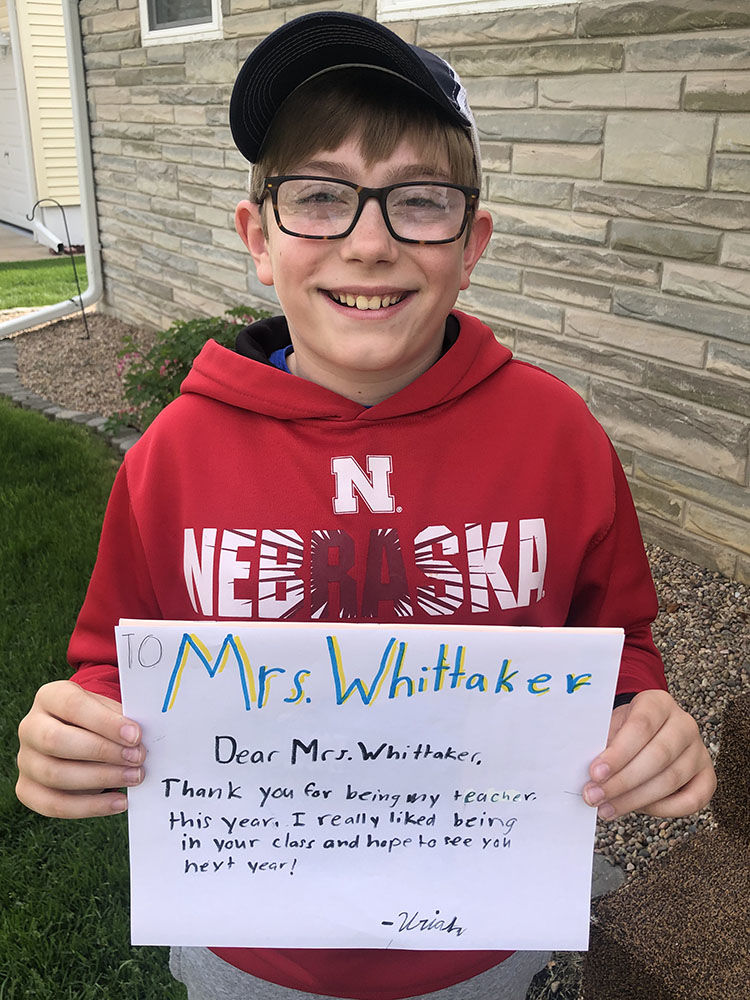 N
NEBRASKA
TO Mrs. Whittaker
Dear Mrs. Whittaker,
Thank you for being my teacher.
this year. I really liked being
in your class and hope to see you
next year!
-Uriah